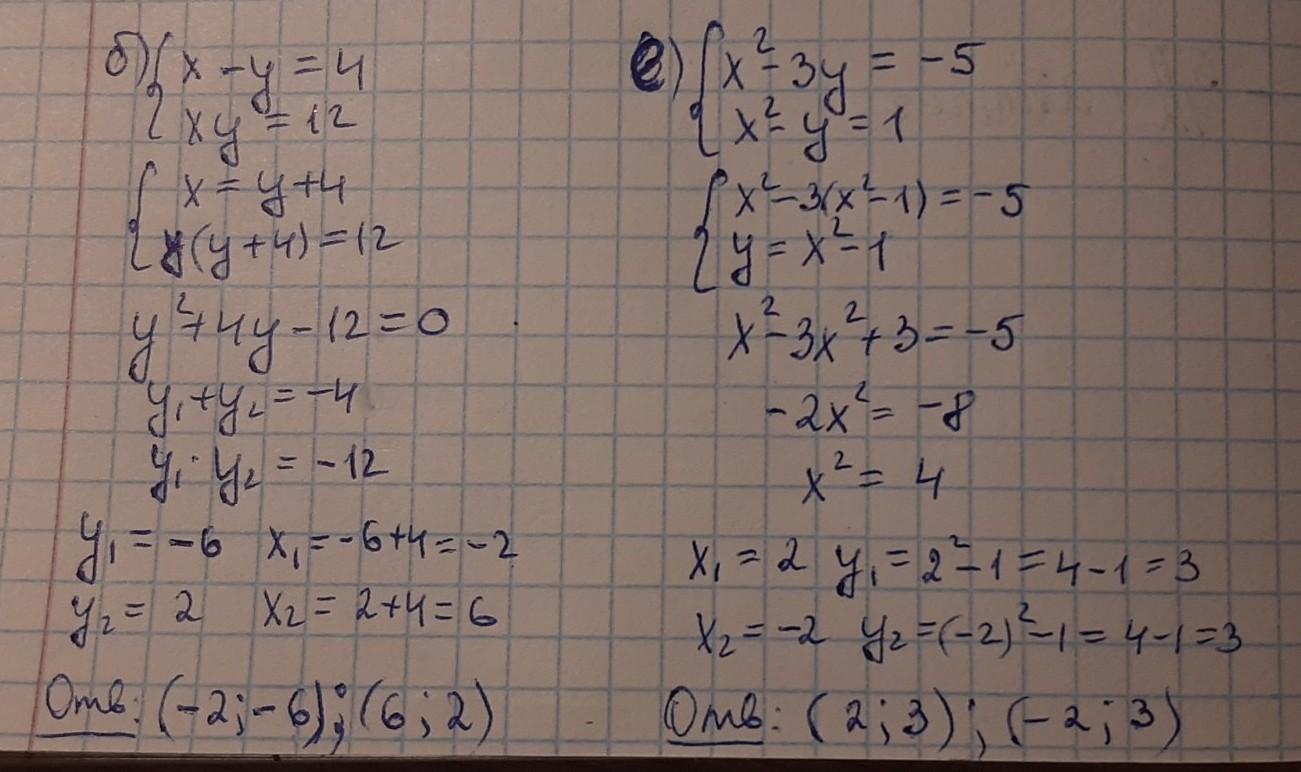 б) x - y = 4
xy = 12
x = y + 4
y(y + 4) = 12
y² + 4y - 12 = 0
y₁ + y₂ = -4
y₁ · y₂ = -12
y₁ = -6 x₁ = -6+4 = -2
y₂ = 2 x₂ = 2+4 = 6
Отв: (-2; -6); (6; 2)
е) x² - 3y = -5
x² - y = 1
x² - 3(x² - 1) = -5
y = x² - 1
x² - 3x² + 3 = -5
-2x² = -8
x² = 4
x₁ = 2 y₁ = 2² - 1 = 4 - 1 = 3
x₂ = -2 y₂ = (-2)² - 1 = 4 - 1 = 3
Отв: (2; 3); (-2; 3)